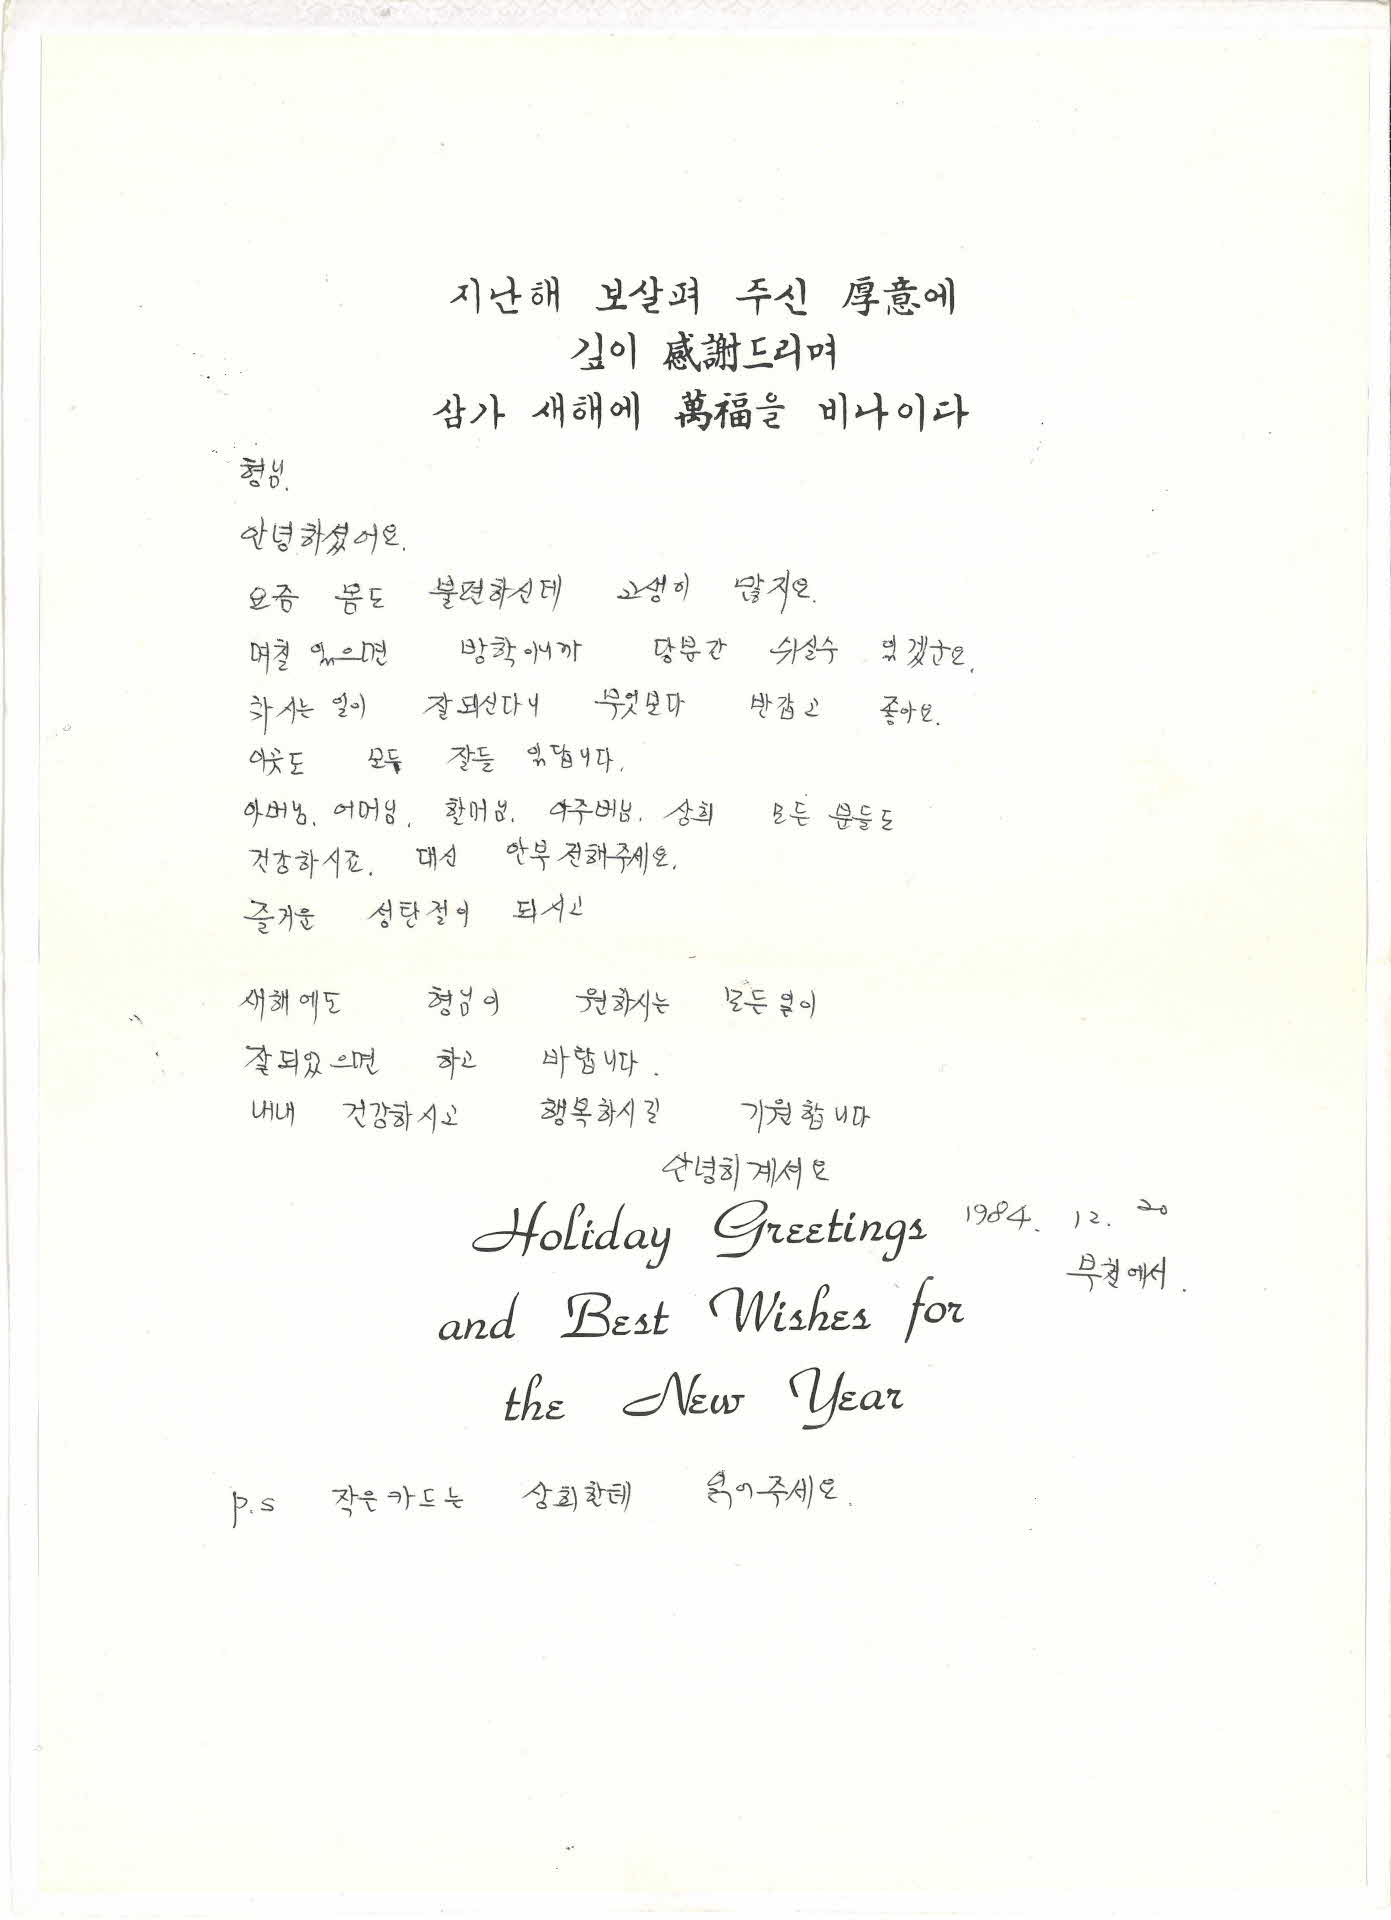 지난해 보살펴 주신 厚意에
깊이 感謝드리며
삼가 새해에 萬福을 비나이다
형님.
안녕하셨어요.
요즘 몸도 불편하신데 고생이 많지요.
며칠 있으면 방학이니까 당분간 쉬실수 있겠군요.
하시는 일이 잘되신다니 무엇보다 반갑고 좋아요.
이곳도 모두 잘들 있답니다.
아버님. 어머님. 할머님. 아주버님. 상희 모든 분들도
건강하시죠. 대신 안부 전해주세요.
즐거운 성탄절이 되시고
새해에도 형님이 원하시는 모든일이
잘되있으면 하고 바랍니다.
내내 건강하시고 행복하시길 기원합니다
안녕히계셔요
Holiday Greetings 1984. 12. 20
부천에서.
and Best Wishes for
the New Year
p.s 작은카드는 상희한테 읽어주세요.